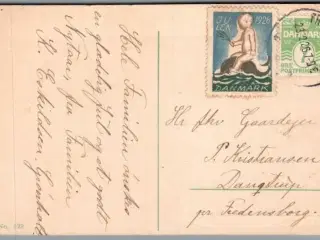 Hele Familien ønskes
en glædelig Jul og et godt
Nytaar, fra Familien
K. Eskildsen. Grønholt
JULEN 1926
DANMARK
DANMARK
Hr frhv Gaardejer
P. Kristiansen
Dangtrup
pr Fredensborg.